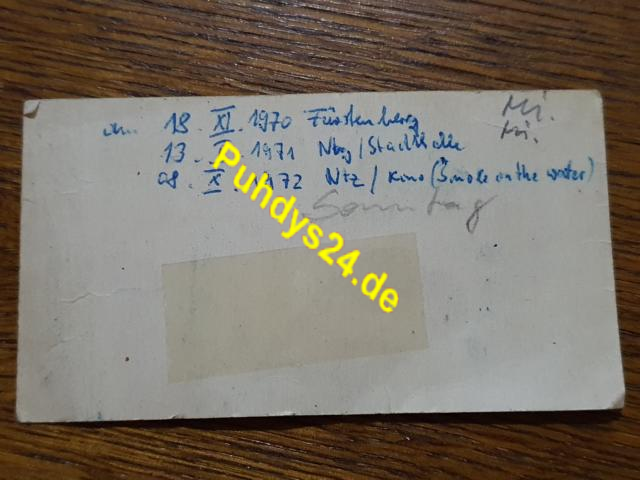 am 18. XI. 1970 Fürstenberg Mi.
13. 1971 Nbg/Stadthalle Mi.
08. X. 1972 Ntz / Kino (Smoke on the water)
Sonntag
Puhdys24.de